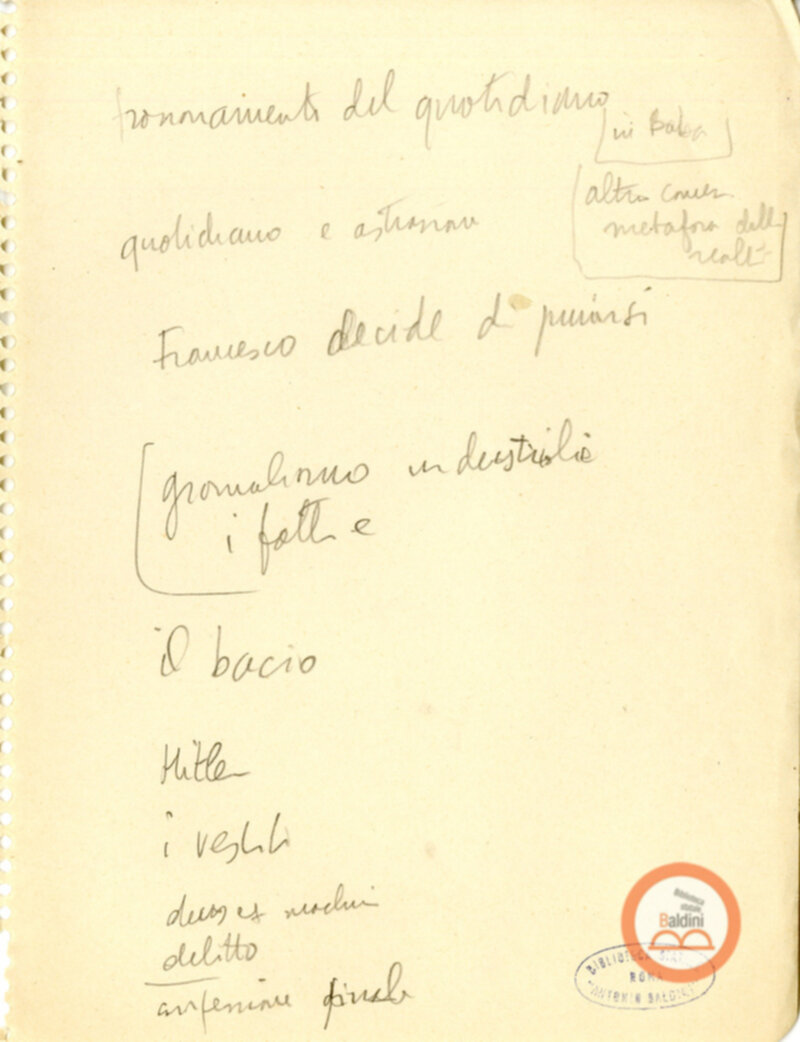 del quotidiano
in
quotidiano e astrazione
altra
metafora della
realtà
Francesco decide di punirsi
giornalismo industriale
i fatti e
il bacio
Hitler
i vestiti
deus ex machina
delitto
confessione finale
Biblioteca
statale
Baldini
BIBLIOTECA STATALE
ROMA
"ANTONIO BALDINI"